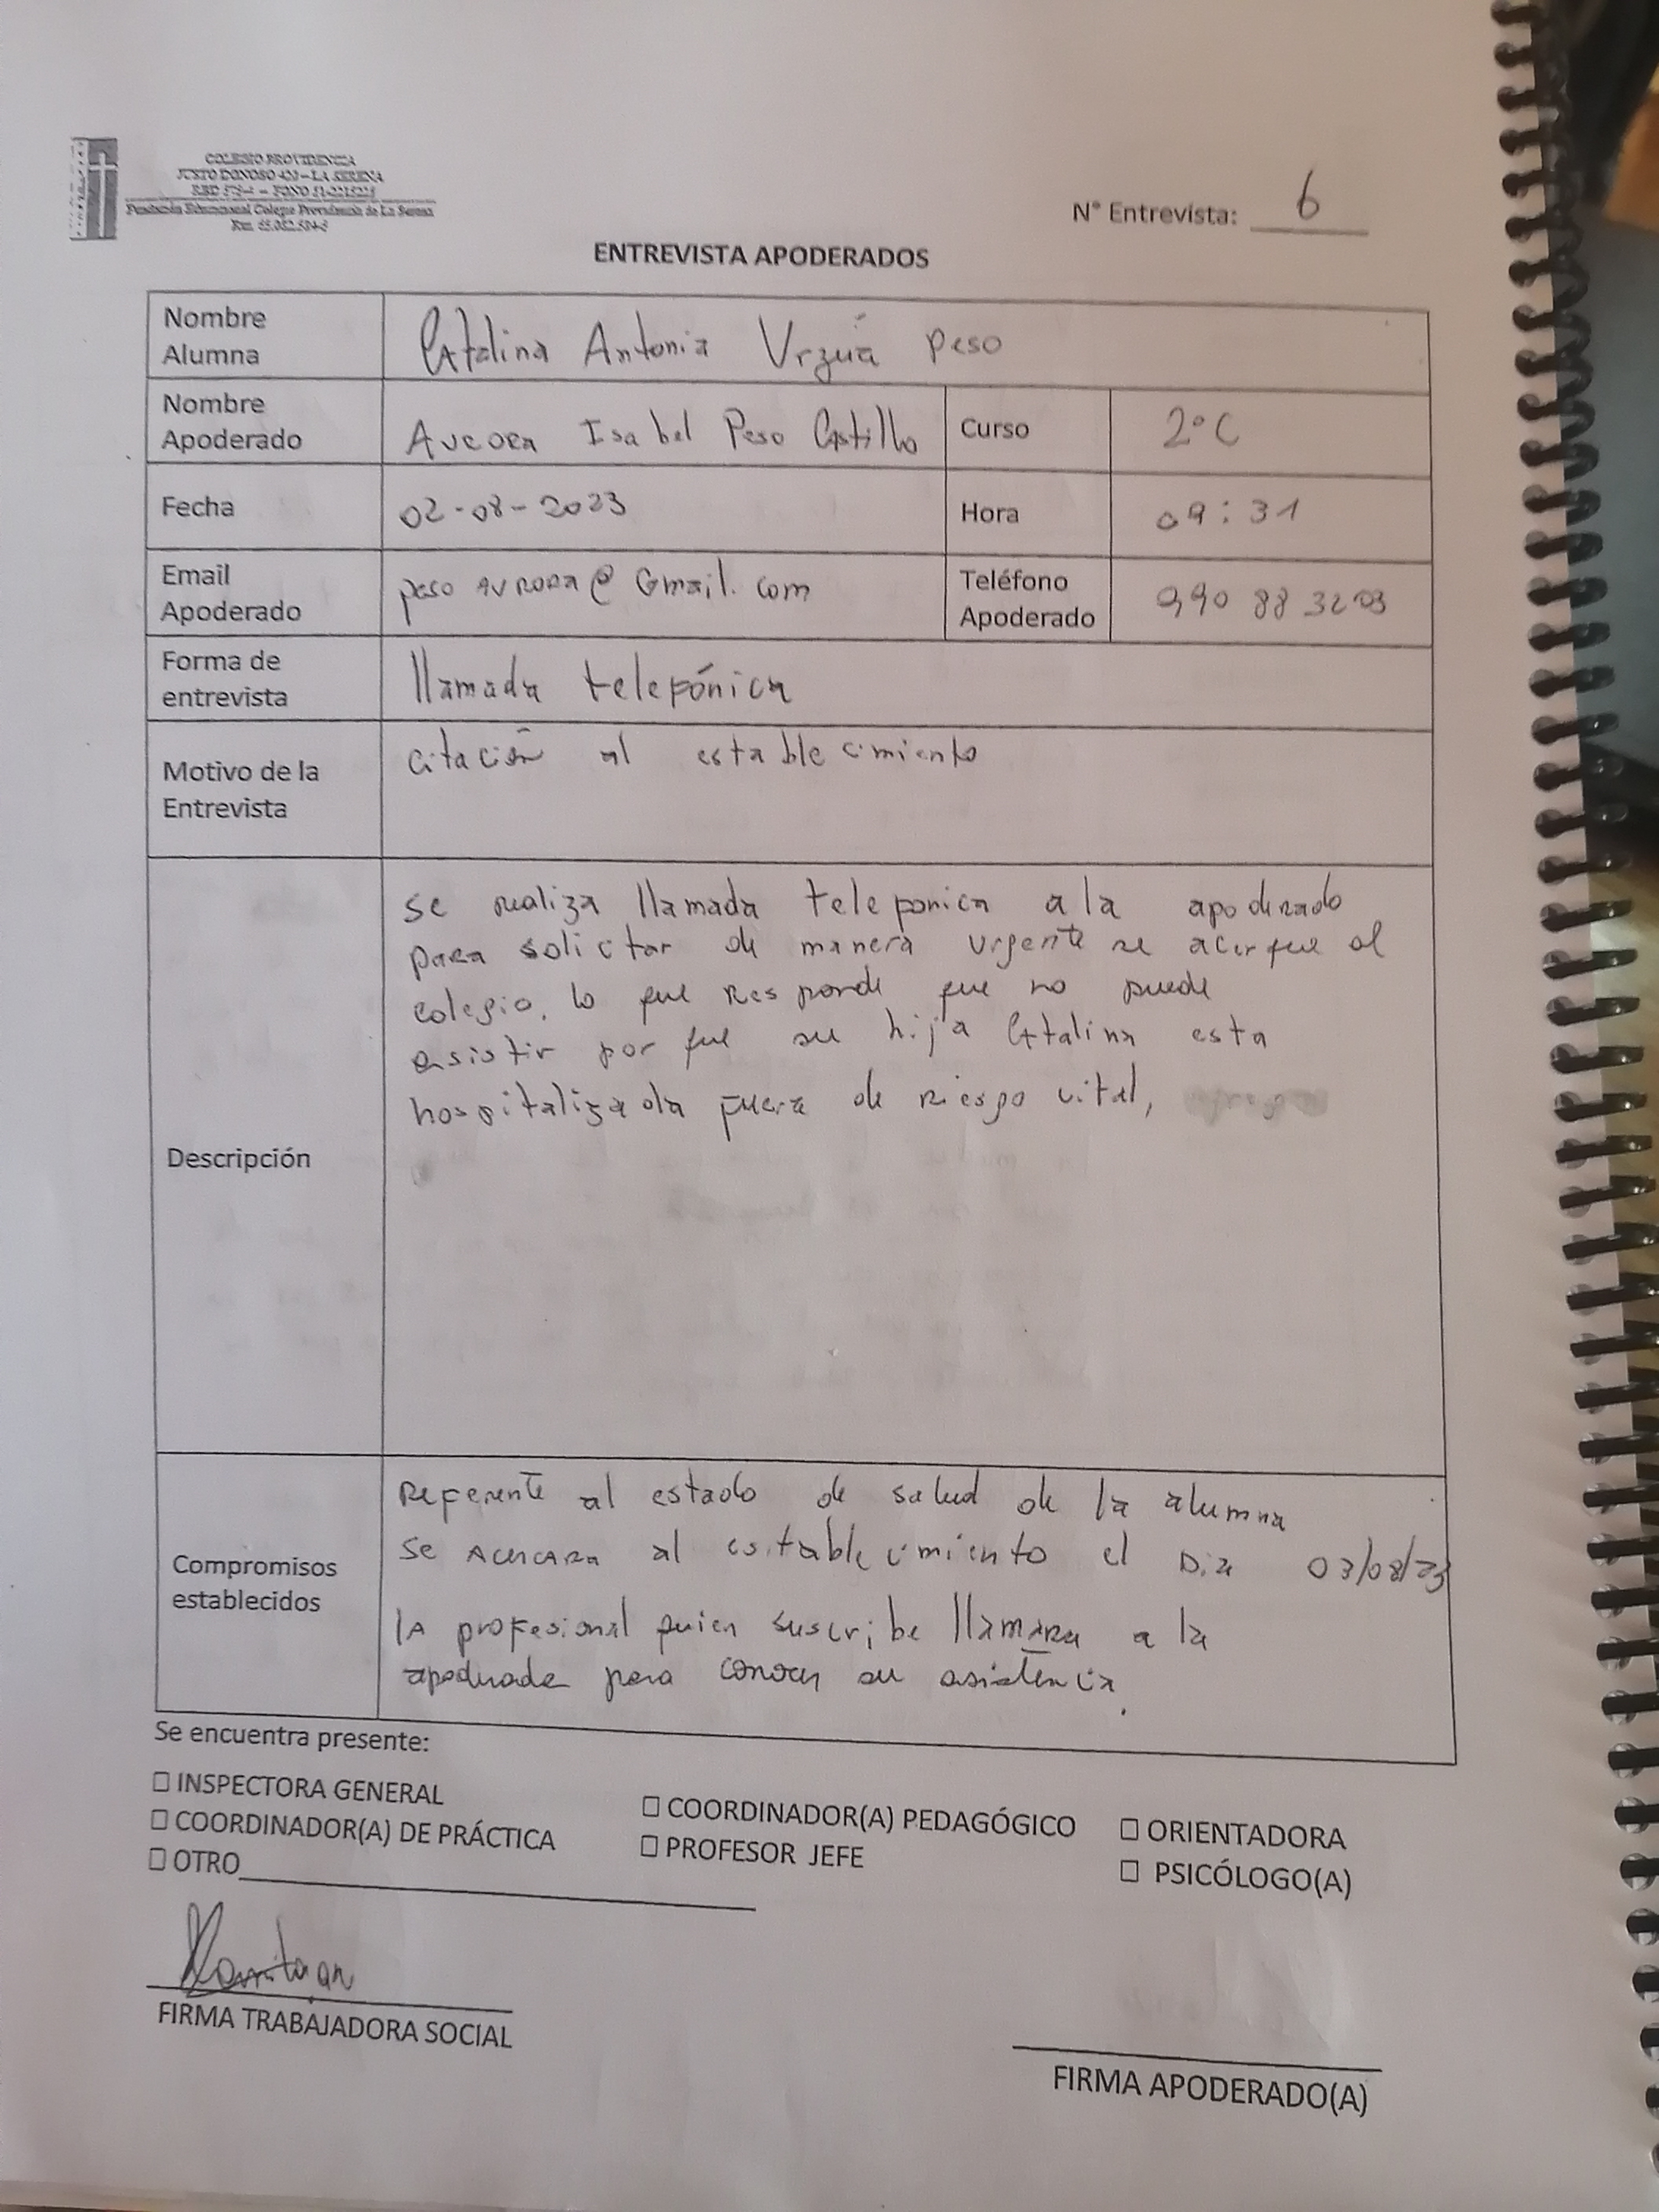 COLEGIO PROVIDENCIA
JUSTO DONOSO 420 – LA SERENA
Fundación Educacional Colegio Providencia de La Serena
N° Entrevista: 6
ENTREVISTA APODERADOS
Nombre Alumna
Catalina Antonia Urzúa Peso
Nombre Apoderado
Aurora Isabel Peso Castillo
Curso
2°C
Fecha
02-08-2023
Hora
09:31
Email Apoderado
peso AURORA@Gmail.com
Teléfono Apoderado
990 88 3203
Forma de entrevista
llamada telefónica
Motivo de la Entrevista
citación al establecimiento
Descripción
se realiza llamada telefonica a la apoderado
para solicitar de manera urgente se acerque al
colegio. lo que Responde que no puede
asistir por que su hija Catalina esta
hospitalizada fuera de riesgo vital,
Compromisos establecidos
Referente al estado de salud de la alumna
se ACERCARA al establecimiento el Dia 03/08/23
la profesional quien suscribe llamara a la
apoderada para conocer su asistencia.
Se encuentra presente:
☐ INSPECTORA GENERAL
☐ COORDINADOR(A) PEDAGÓGICO
☐ ORIENTADORA
☐ COORDINADOR(A) DE PRÁCTICA
☐ PROFESOR JEFE
☐ PSICÓLOGO(A)
☐ OTRO
FIRMA TRABAJADORA SOCIAL
FIRMA APODERADO(A)